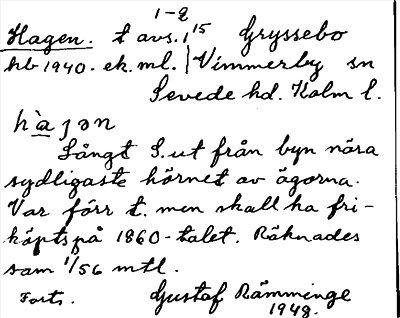 1-2
Hagen. t avs. 1/15 Gryssebo
hb 1940. ek. ml. Vimmerby sn
Sevede hd. Kalm l.
hàjən
Långt S. ut från byn nära
sydligaste hörnet av ägorna.
Var förr t. men skall ha fri-
köpts på 1860-talet. Räknades
som 1/56 mtl.
Forts. Gustaf Rämminge
1948.